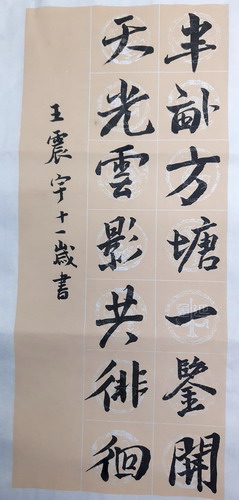 半畝方塘一鑒開
天光雲影共徘徊
王震宇十一歲書